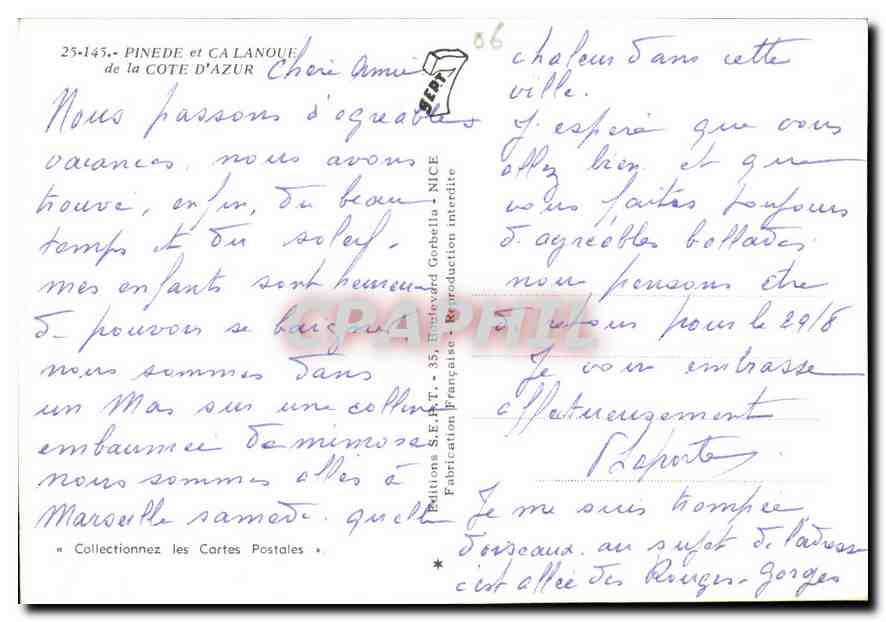 25-145.- PINEDE et CALANQUE
de la COTE D'AZUR
06
SEPT
Chère Amie
Nous passons d'agréables
vacances. nous avons
trouvé, enfin, du beau
temps et du soleil.
mes enfants sont heureux
de pouvoir se baigner
nous sommes dans
un Mas sur une colline
embaumée de mimosa
nous sommes allés à
Marseille samedi. quelle
« Collectionnez les Cartes Postales ».
Editions S.E.P.T. - 35, Boulevard Gorbella - NICE
Fabrication Française - Reproduction interdite
CPAPHIL
chaleur dans cette
ville.
J'espère que vous
allez bien et que
vous faites toujours
d'agréables ballades.
nous pensons être
de retour pour le 29/8
Je vous embrasse
affectueusement
Laporte
Je me suis trompée
d'oiseaux. au sujet de l'adresse
c'est allée des Rouges-Gorges